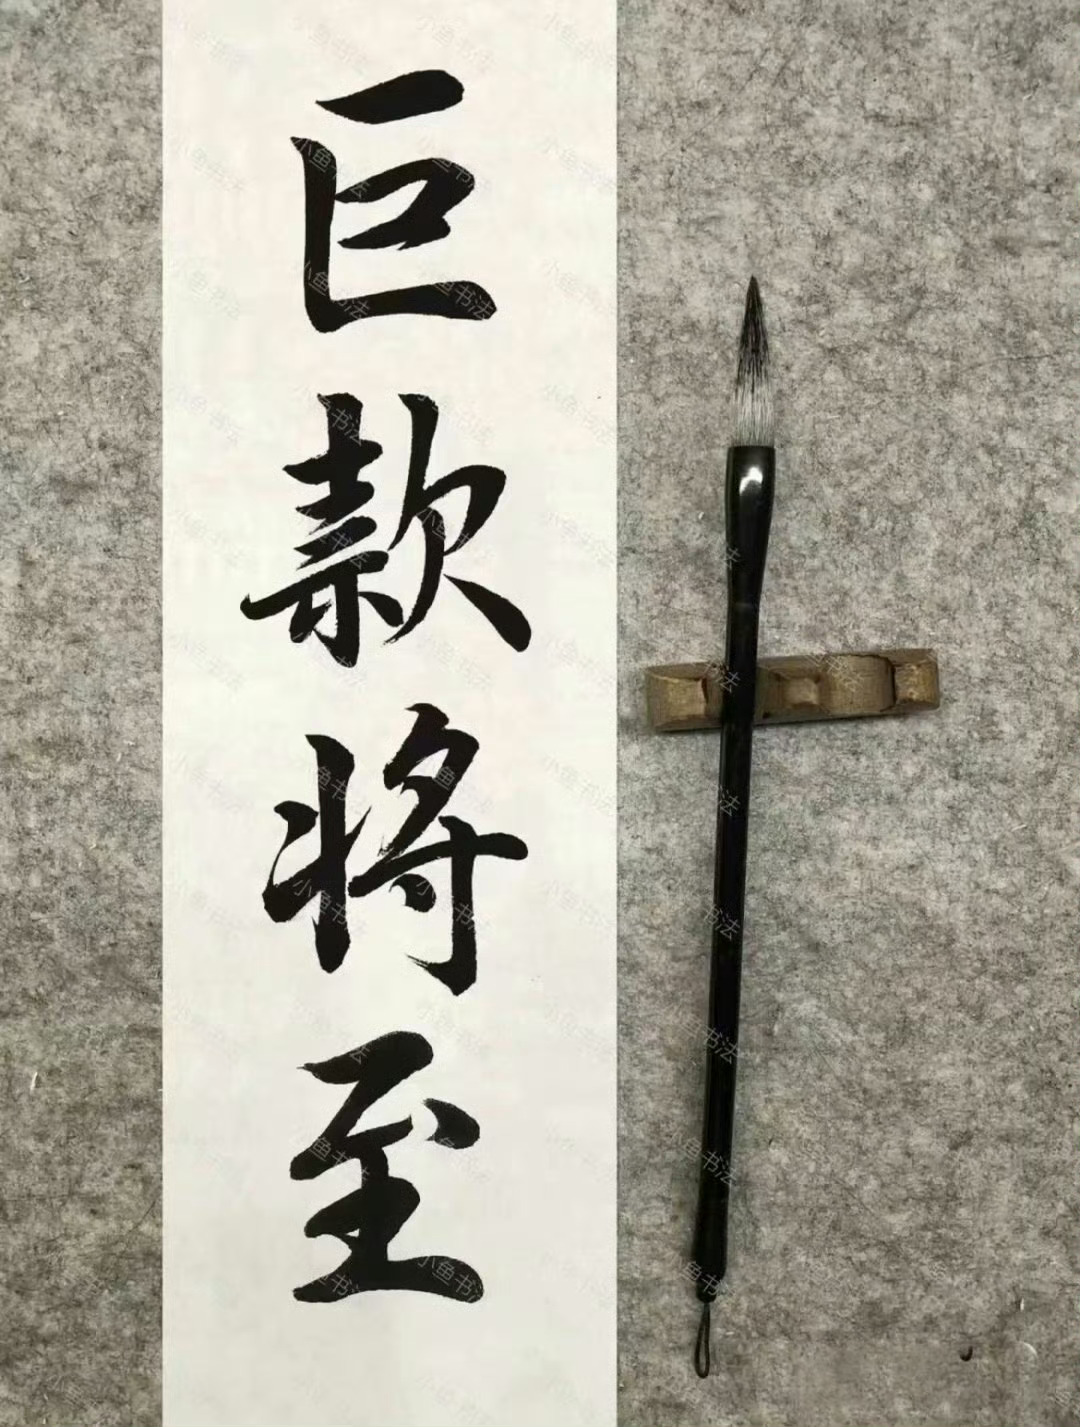 巨款将至
小鱼书法